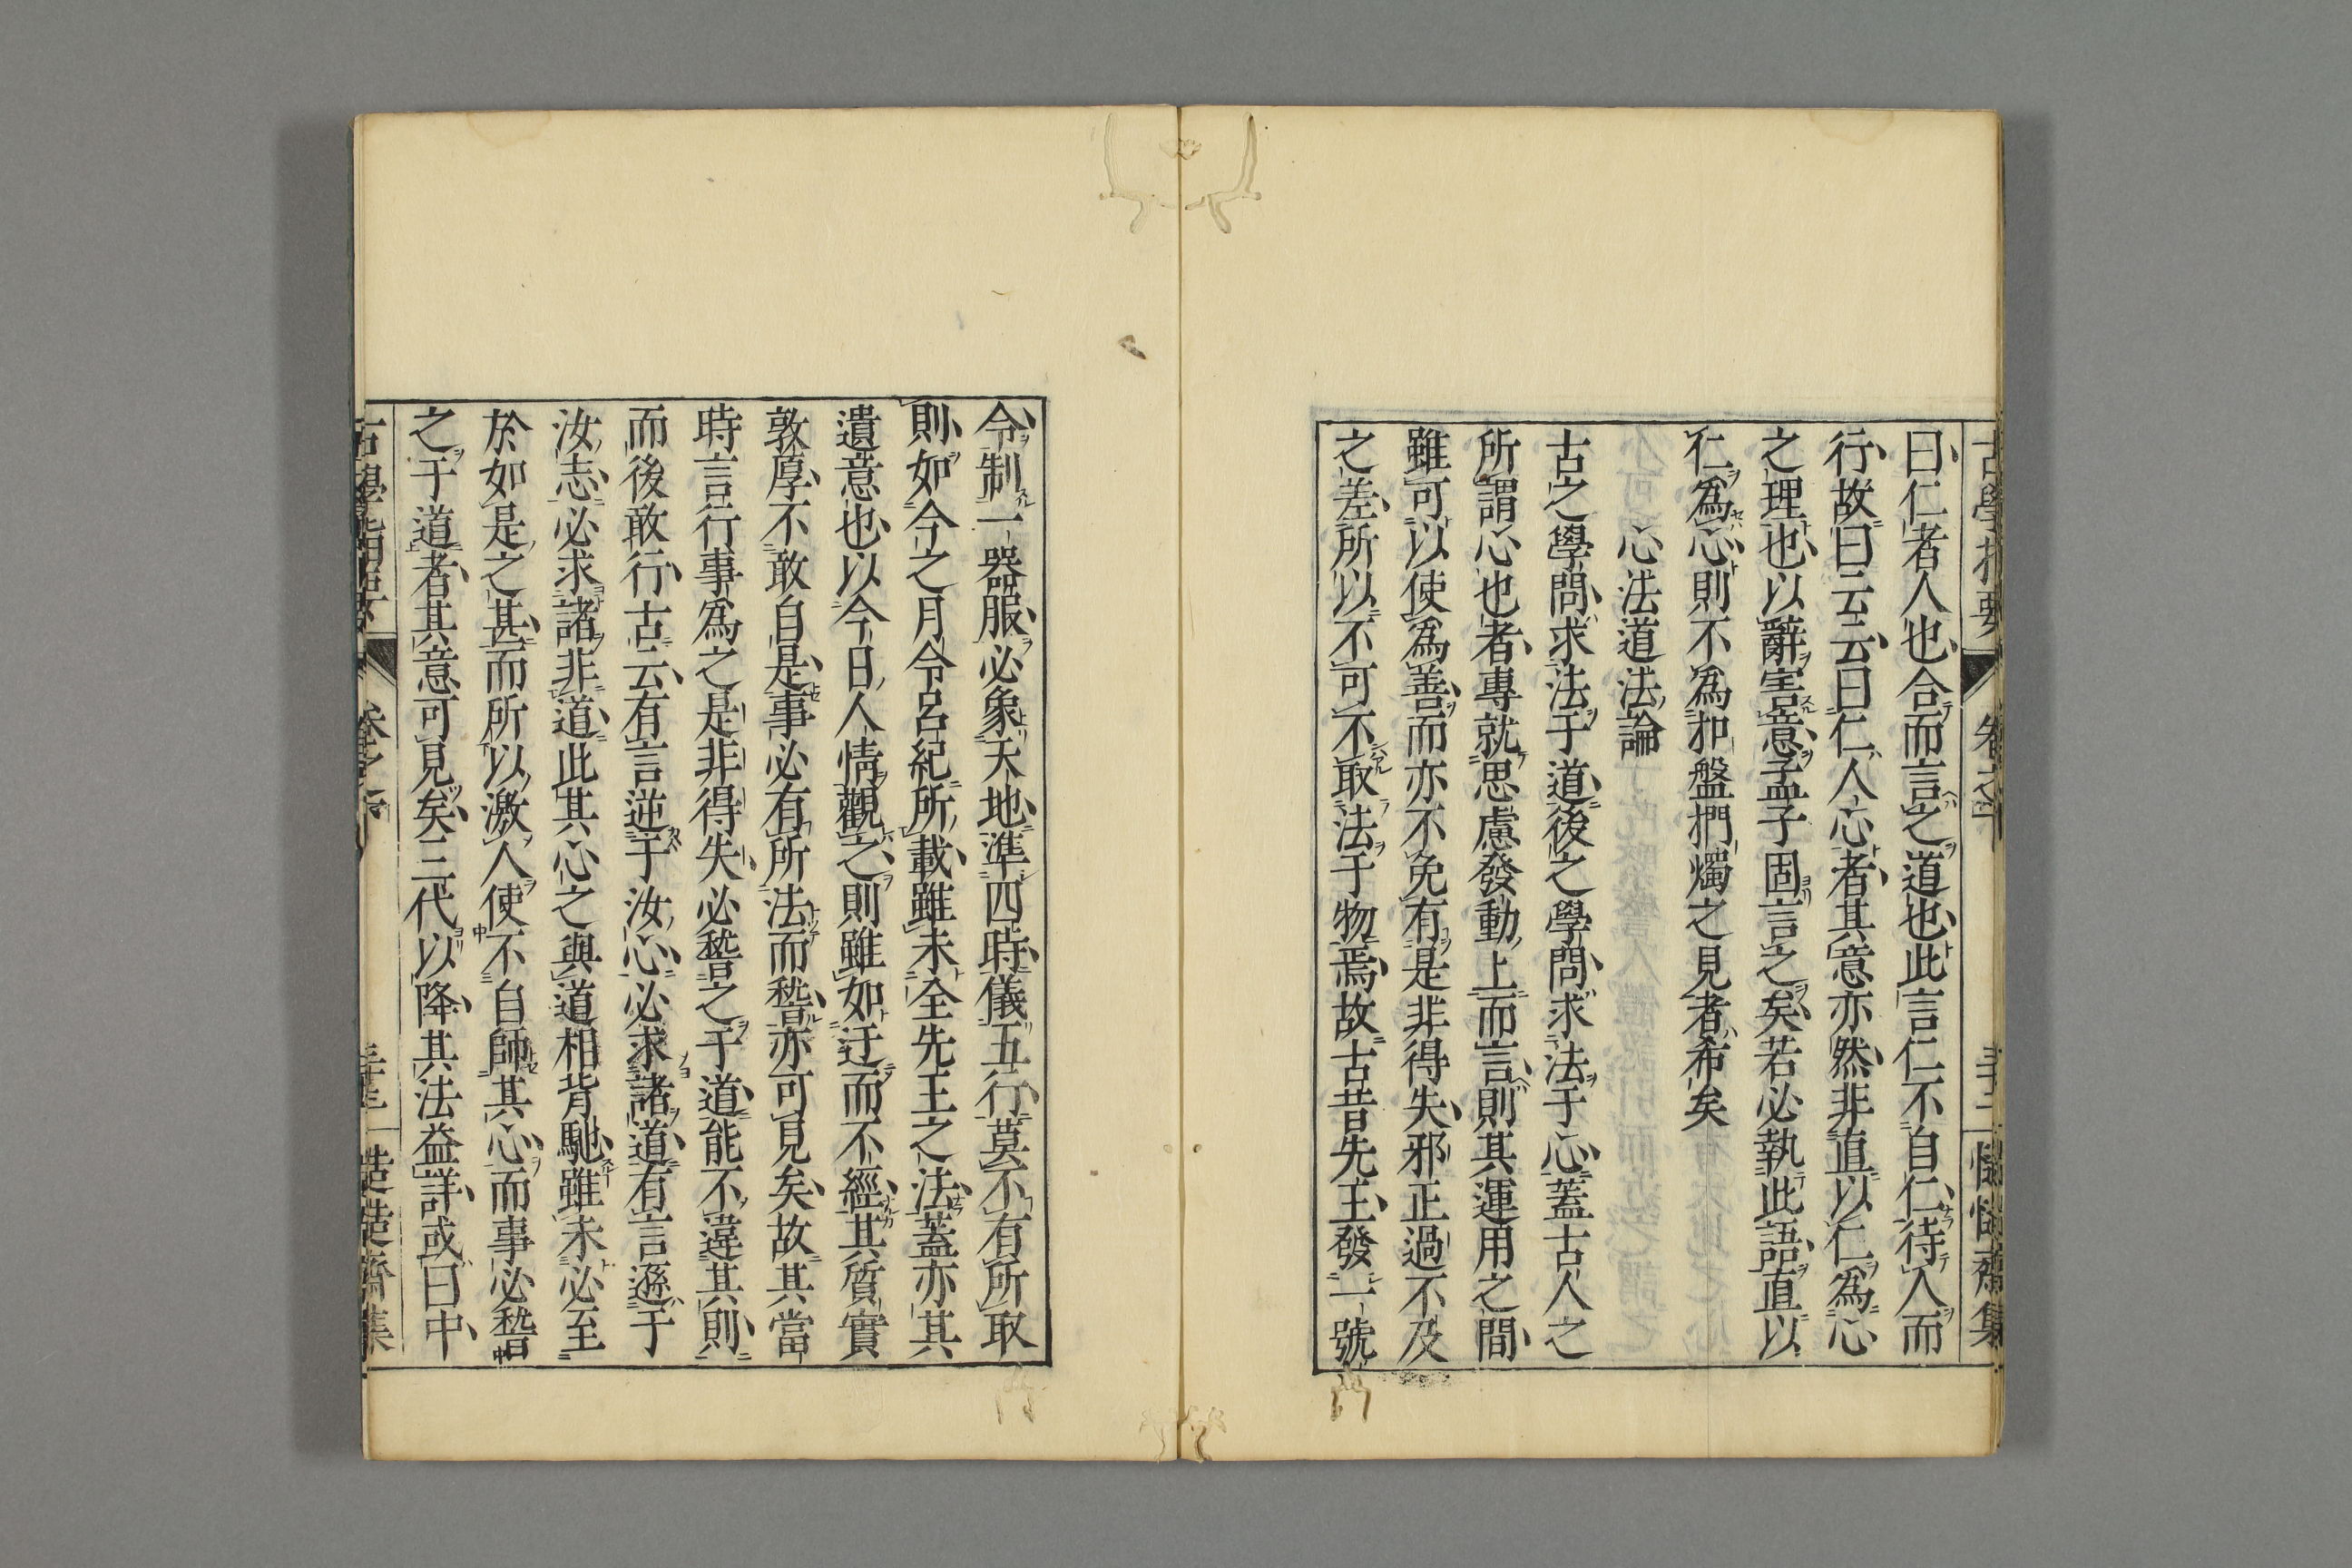 曰仁者人也合而言之道也此言仁不自仁待人而
行故曰云云曰仁人心者其意亦然非直以仁為心
之理也以辭害意孟子固言之矣若必執此語直以
仁為心則不為扣盤捫燭之見者希矣
心法道法論
古之學問求法于道後之學問求法于心蓋古人之
所謂心也者專就思慮發動上而言則其運用之間
雖可以使為善而亦不免有是非得失邪正過不及
之差所以不可不取法于物焉故古昔先王發一號
令制一器服必象天地準四時儀五行莫不有所取
則如今之月令呂紀所載雖未全先王之法蓋亦其
遺意也以今日人情觀之則雖如迂而不經其質實
敦厚不敢自是事必有所法而稽亦可見矣故其當
時言行事為之是非得失必稽之于道能不違其則
而後敢行古云有言逆于汝心必求諸道有言遜于
汝志必求諸非道此其心之與道相背馳雖未必至
於如是之甚而所以激人使不自師其心而事必稽
之于道者其意可見矣三代以降其法益詳或曰中